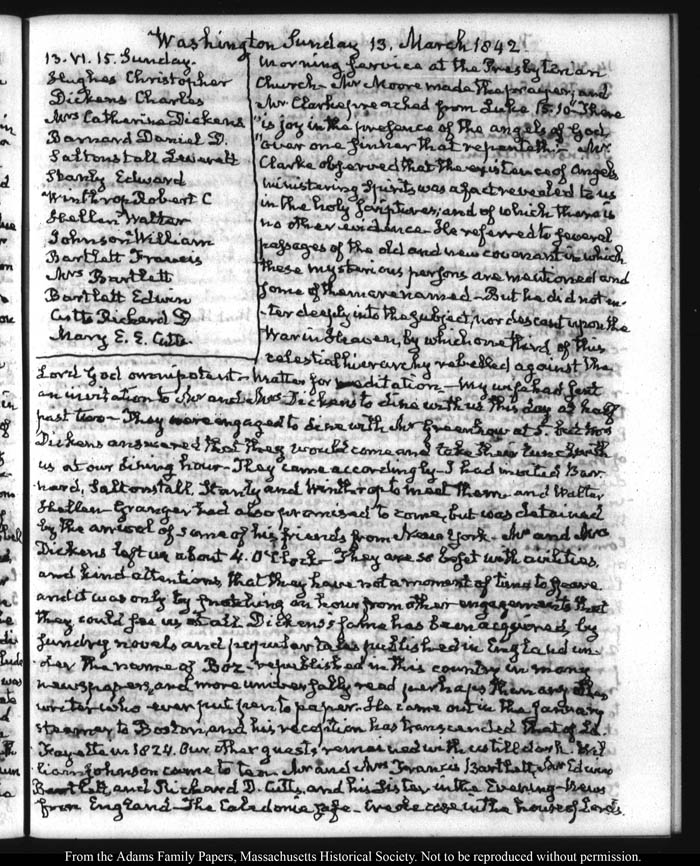 Washington Sunday 13. March 1842
13. VI. 15. Sunday.
Hughes Christopher
Dickens Charles
Mrs Catherine Dickens
Barnard Daniel D.
Saltonstall Leverett
Stanly Edward
Winthrop Robert C
Hellen Walter
Johnson William
Bartlett Francis
Mrs Bartlett
Bartlett Edwin
Cutts Richard D
Mary E. E. Cutts
Morning service at the Presbyterian
Church Mr Moore made the prayer; and
Mr Clarke preached from Luke 15. 10 "There
"is joy in the presence of the angels of God,
"over one sinner that repenteth" Mr
Clarke observed that the existence of Angels
ministering Spirits was a fact revealed to us
in the holy Scriptures; and of which there is
no other evidence. He referred to several
passages of the old and new covenant in which
these mysterious persons are mentioned and
some of them are named- But he did not en-
-ter deeply into the subject, nor descant upon the
War in Heaven, by which one third of this
celestial hierarchy rebelled against the
Lord God omnipotent- Matter for meditation- My wife had sent
an invitation to Mr and Mrs Dickens to dine with us this day at half
past two- They were engaged to dine with Mr Greenhow at 5. but Mrs
Dickens answered that they would come and take their lunch with
us at our dining hour- They came accordingly- I had invited Bar-
nard, Saltonstall, Stanly and Winthrop to meet them- and Walter
Hellen- Granger had also promised to come, but was detained
by the arrival of some of his friends from New York- Mr and Mrs
Dickens left us about 4. O'Clock- They are so beset with civilities,
and kind attentions, that they have not a moment of time to spare
and it was only by snatching an hour from other engagements that
they could see us at all. Dickens's fame has been acquired, by
sundry novels and popular tales published in England un-
-der the name of Boz- republished in this country in many
newspapers, and more universally read perhaps than any other
writer who ever put pen to paper. He came out in the January
steamer to Boston, and his reception has transcended that of La
Fayette in 1824. Our other guests remained with us till dark. Wil-
liam Johnson came to tea. Mr and Mrs Francis Bartlett, Mr Edwin
Bartlett, and Richard D. Cutts, and his Sister in the Evening- News
from England- The Caledonia safe- in the house of Lords.
From the Adams Family Papers, Massachusetts Historical Society. Not to be reproduced without permission.